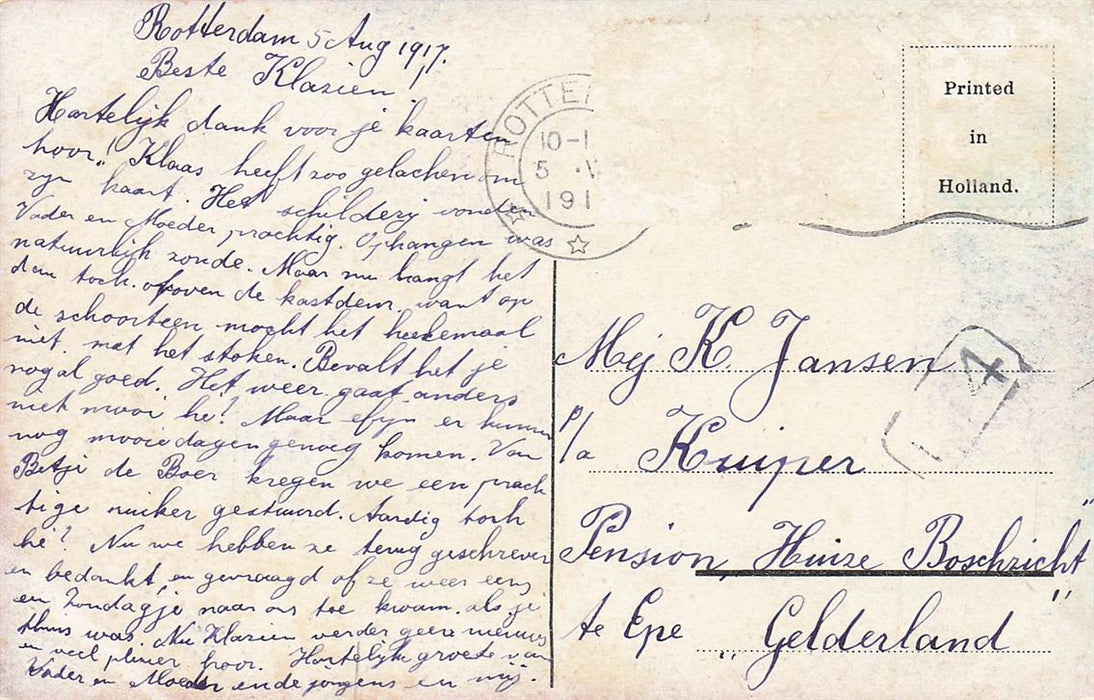 Rotterdam 5 Aug 1917.
Beste Klasien!
Hartelijk dank voor je kaarten
hoor! Klaas heeft zoo gelachen om
zijn kaart. Het schilderij vonden
Vader en Moeder prachtig. Ophangen was
natuurlijk zonde. Maar nu hangt het
dan toch boven de kastdeur, want op
de schoorsteen mocht het heelemaal
niet met het stoken. Bevalt het je
nogal goed. Het weer gaat anders
niet mooi hé? Maar efijn er kunnen
nog mooie dagen genoeg komen. Van
Betje de Boer kregen we een prach
tige ruiker gestuurd. Aardig toch
hé? Nu we hebben ze terug geschreven
en bedankt, en gevraagd of ze weer eens
een Zondagje naar ons toe kwam. als je
thuis was. Nu Klasien verder geen nieuws
en veel plezier hoor. Hartelijke groete van
Vader en Moeder en de jongens en mij.
ROTTE
10-1
5 .V
191
Printed
in
Holland.
4
Mej K. Jansen
p/a Kuiper
Pension „Huize Boschzicht"
te Epe „Gelderland"